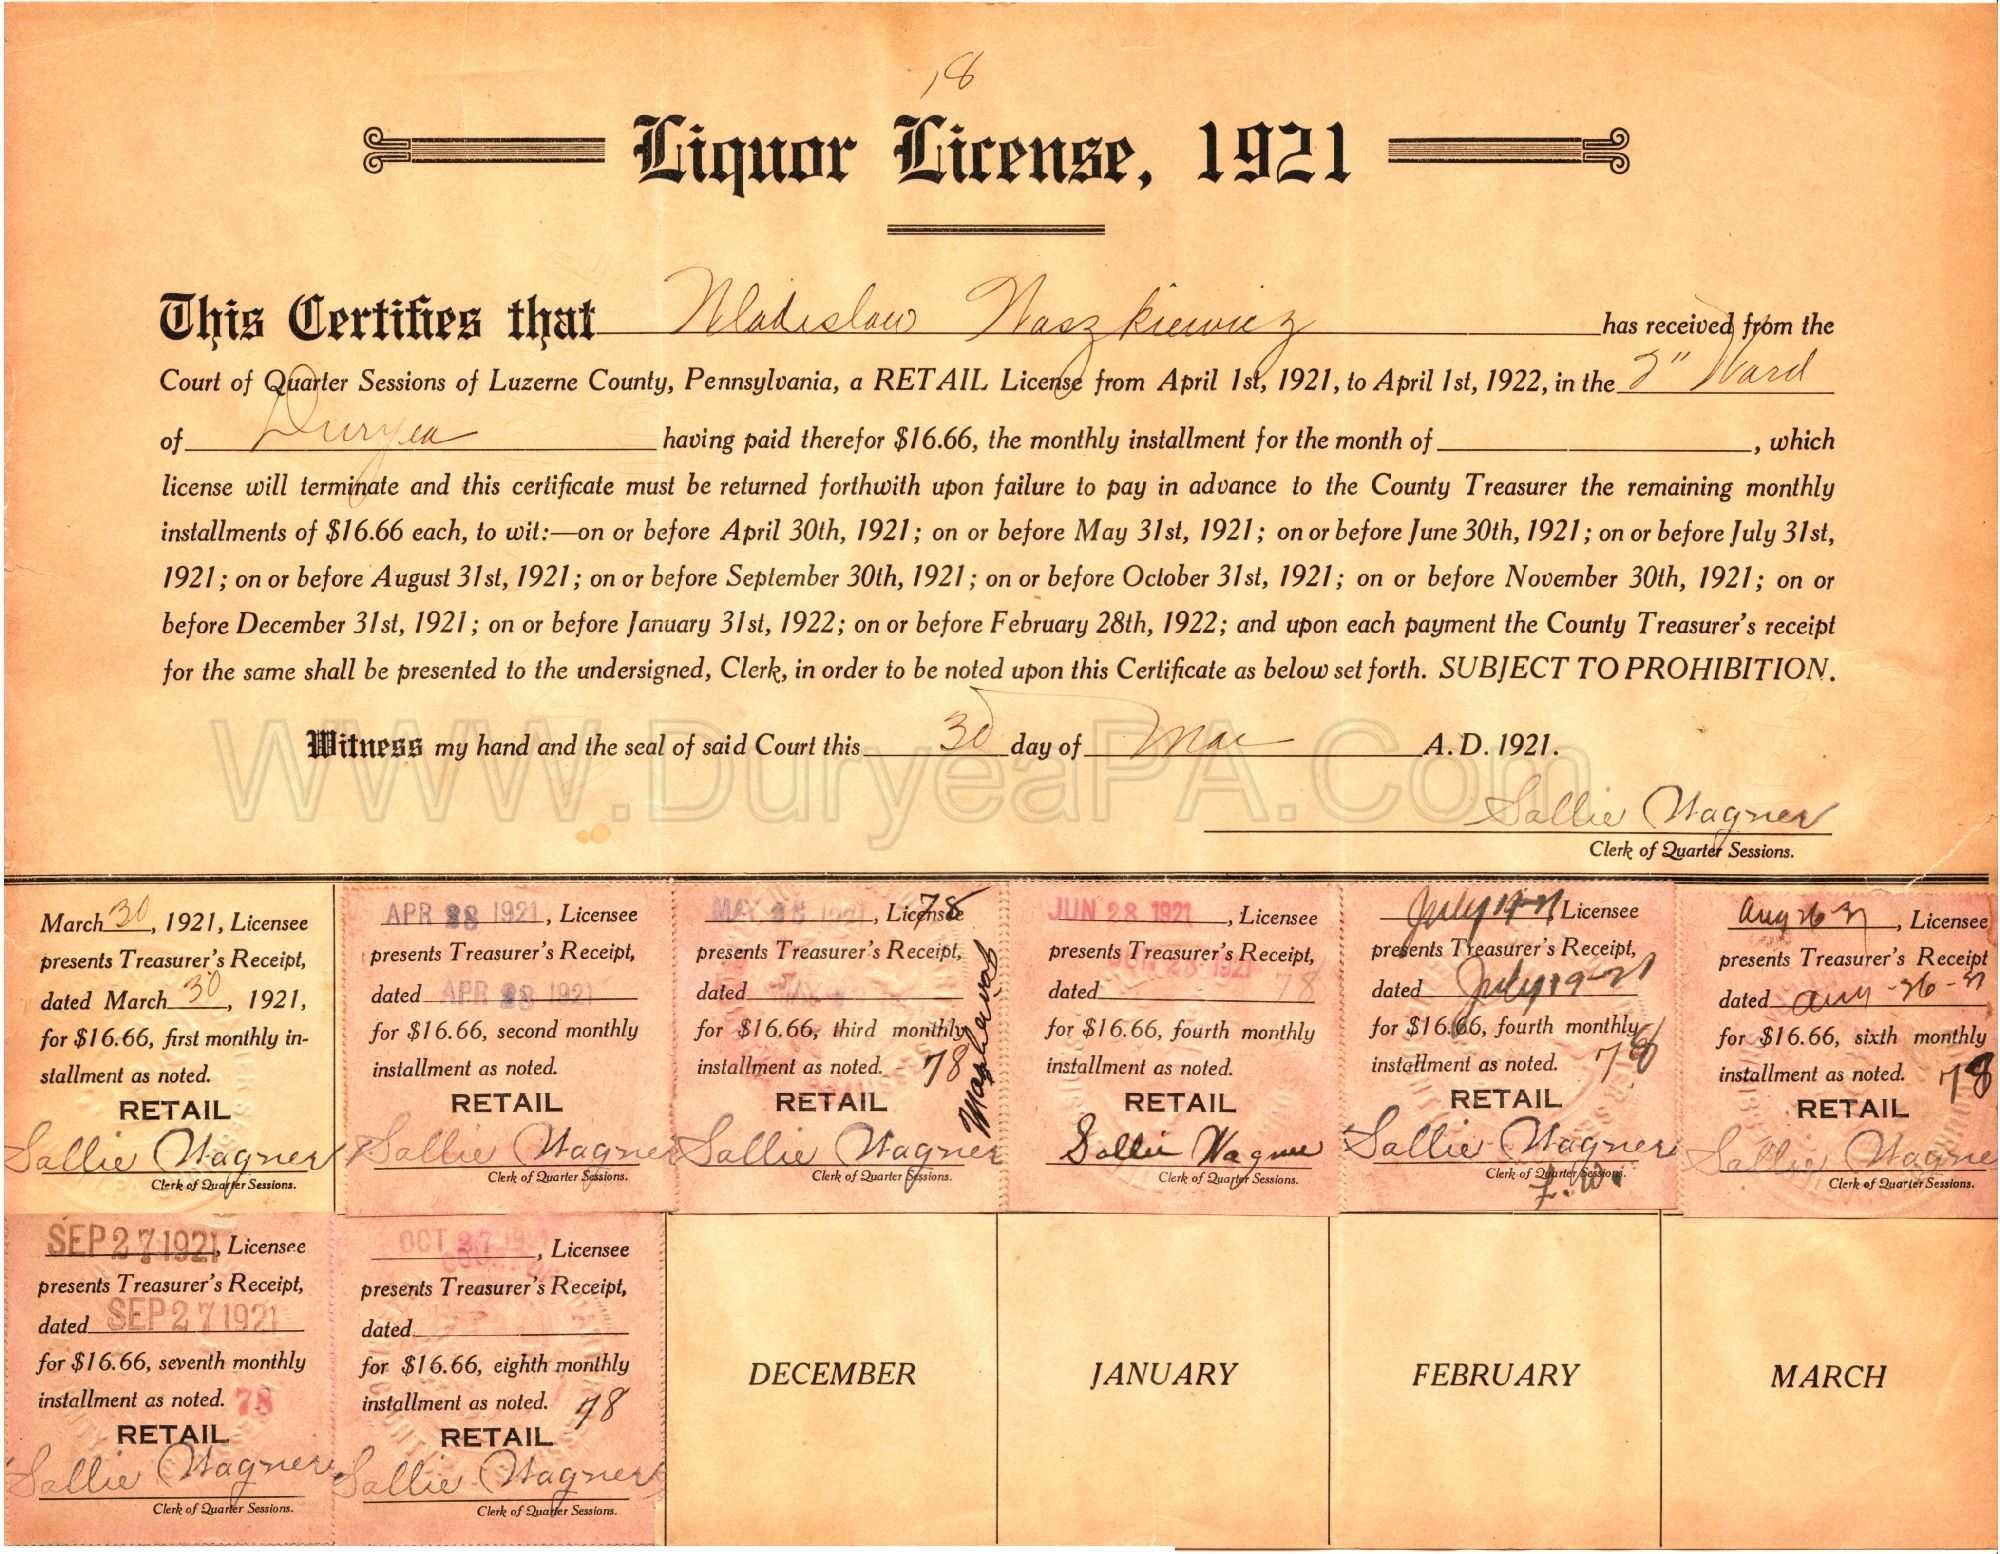 78
Liquor License, 1921
This Certifies that Wladislaw Waszkiewicz has received from the
Court of Quarter Sessions of Luzerne County, Pennsylvania, a RETAIL License from April 1st, 1921, to April 1st, 1922, in the 2" Ward
of Duryea having paid therefor $16.66, the monthly installment for the month of , which
license will terminate and this certificate must be returned forthwith upon failure to pay in advance to the County Treasurer the remaining monthly
installments of $16.66 each, to wit:—on or before April 30th, 1921; on or before May 31st, 1921; on or before June 30th, 1921; on or before July 31st,
1921; on or before August 31st, 1921; on or before September 30th, 1921; on or before October 31st, 1921; on or before November 30th, 1921; on or
before December 31st, 1921; on or before January 31st, 1922; on or before February 28th, 1922; and upon each payment the County Treasurer's receipt
for the same shall be presented to the undersigned, Clerk, in order to be noted upon this Certificate as below set forth. SUBJECT TO PROHIBITION.
Witness my hand and the seal of said Court this 30 day of Mar A. D. 1921.
WWW.DuryeaPA.Com
Sallie Wagner
Clerk of Quarter Sessions.
March 30, 1921, Licensee
presents Treasurer's Receipt,
dated March 30, 1921,
for $16.66, first monthly in-
stallment as noted.
RETAIL
Sallie Wagner
Clerk of Quarter Sessions.
APR 28 1921, Licensee
presents Treasurer's Receipt,
dated APR 28 1921
for $16.66, second monthly
installment as noted.
RETAIL
Sallie Wagner
Clerk of Quarter Sessions.
MAY 1921, Licensee
78
presents Treasurer's Receipt,
dated MAY
for $16.66, third monthly
installment as noted. 78
RETAIL
Sallie Wagner
Clerk of Quarter Sessions.
JUN 28 1921, Licensee
presents Treasurer's Receipt,
JUN 28 1921
dated 78
for $16.66, fourth monthly
installment as noted.
RETAIL
Sallie Wagner
Clerk of Quarter Sessions.
July 19-21 Licensee
presents Treasurer's Receipt,
dated July 19-21
for $16.66, fourth monthly
installment as noted. 78
RETAIL
Sallie Wagner
Clerk of Quarter Sessions.
Aug 26-21, Licensee
presents Treasurer's Receipt
dated Aug-26-21
for $16.66, sixth monthly
installment as noted. 78
RETAIL
Sallie Wagner
Clerk of Quarter Sessions.
SEP 27 1921, Licensee
presents Treasurer's Receipt,
dated SEP 27 1921
for $16.66, seventh monthly
installment as noted. 78
RETAIL
Sallie Wagner
Clerk of Quarter Sessions.
OCT 27 1921, Licensee
presents Treasurer's Receipt,
dated
for $16.66, eighth monthly
installment as noted. 78
RETAIL
Sallie Wagner
Clerk of Quarter Sessions.
DECEMBER
JANUARY
FEBRUARY
MARCH